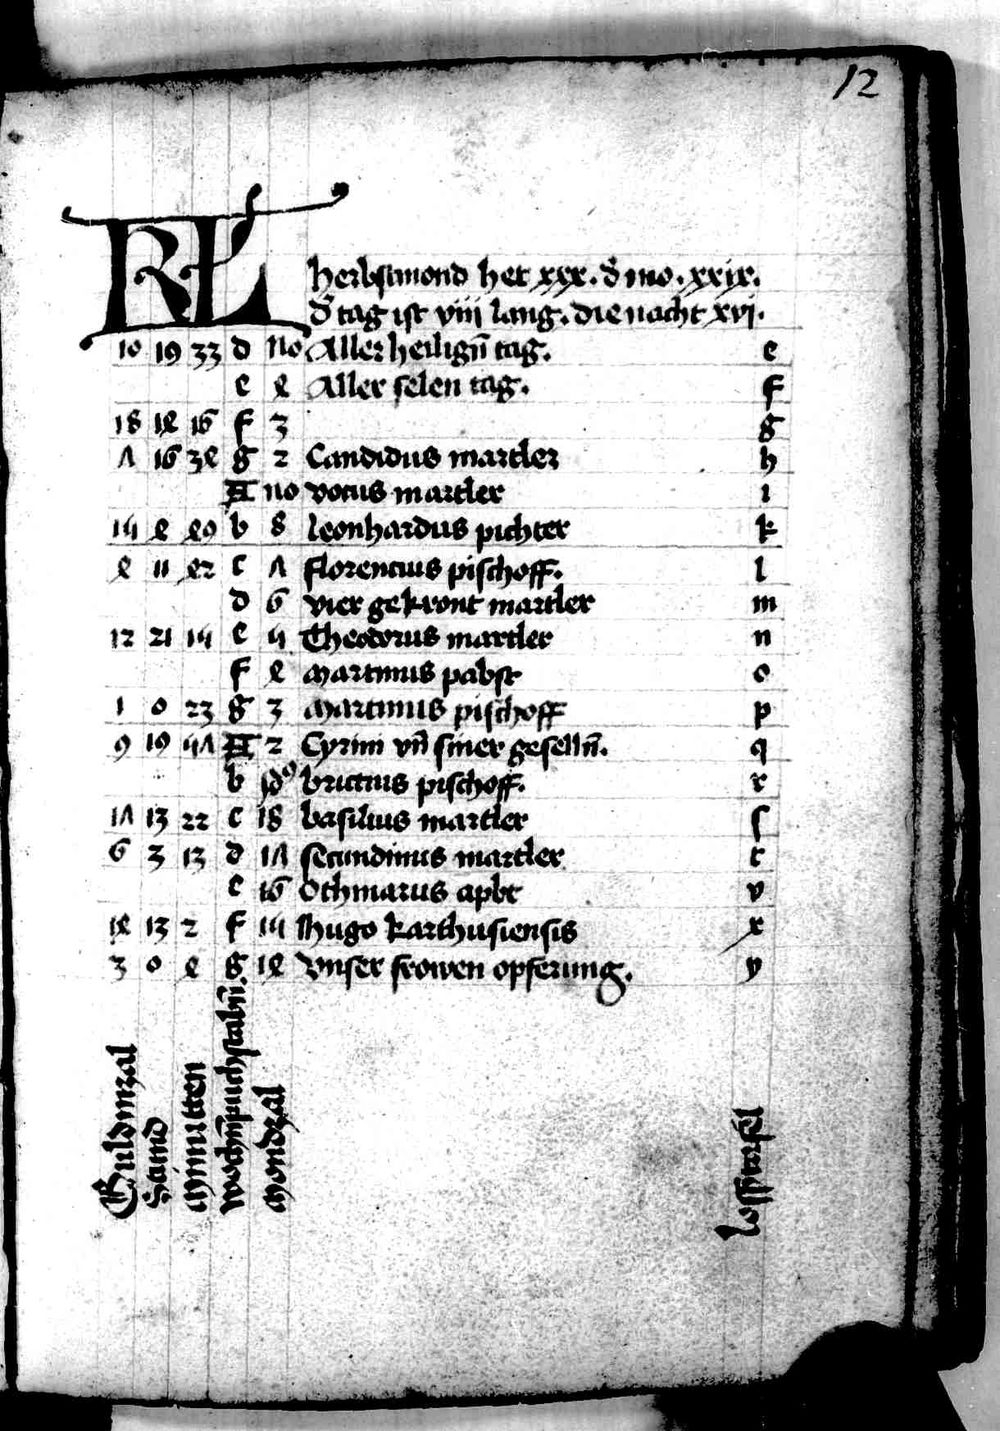 12
KL
Herbstmond het xxx. d̄ mo. xxix.
d̄ tag ist viij lang. die nacht xvj.
10 19 33 d no Aller heilign̄ tag. e
e 4 Aller selen tag. f
18 14 16 f 3 g
7 16 34 g 2 Candidus martler h
A no votus martler i
15 4 49 b 8 leonhardus pichter k
4 11 42 c 7 florencius pischoff. l
d 6 vier gekront martler m
12 21 15 e 5 Theodorus martler n
f 4 Martinus pabst o
1 0 23 g 3 Martinus pischoff p
9 19 57 A 2 Cyrini vn̄ siner geselln̄. q
b id9 brictius pischoff. r
17 13 22 c 18 basilius martler s
6 3 13 d 17 secundinus martler t
e 16 Othmarus apbt v
14 13 2 f 15 Hugo karthusiensis x
3 0 4 g 14 Vnser frowen opferung. y
Guldinzal
Stund
Minutten
wochn̄puchstabn̄.
Mondzal